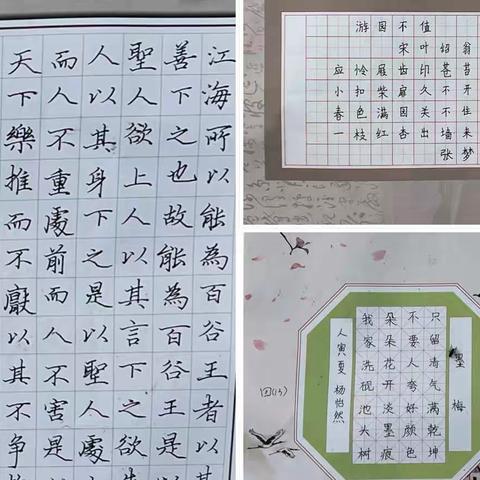 江海所以能為百谷王者以其
善下之也故能為百谷王是
聖人欲上人以其言下之欲先
人以其身下之是以聖人處
而人不重處前而人不害是
天下樂推而不厭以其不争
游园不值
宋叶绍翁
应怜屐齿印苍苔
小扣柴扉久不开
春色满园关不住
一枝红杏出墙来
张梦
墨梅
我家洗砚池头树
朵朵花开淡墨痕
不要人夸好颜色
只留清气满乾坤
人寅夏 杨怡然
四(13)